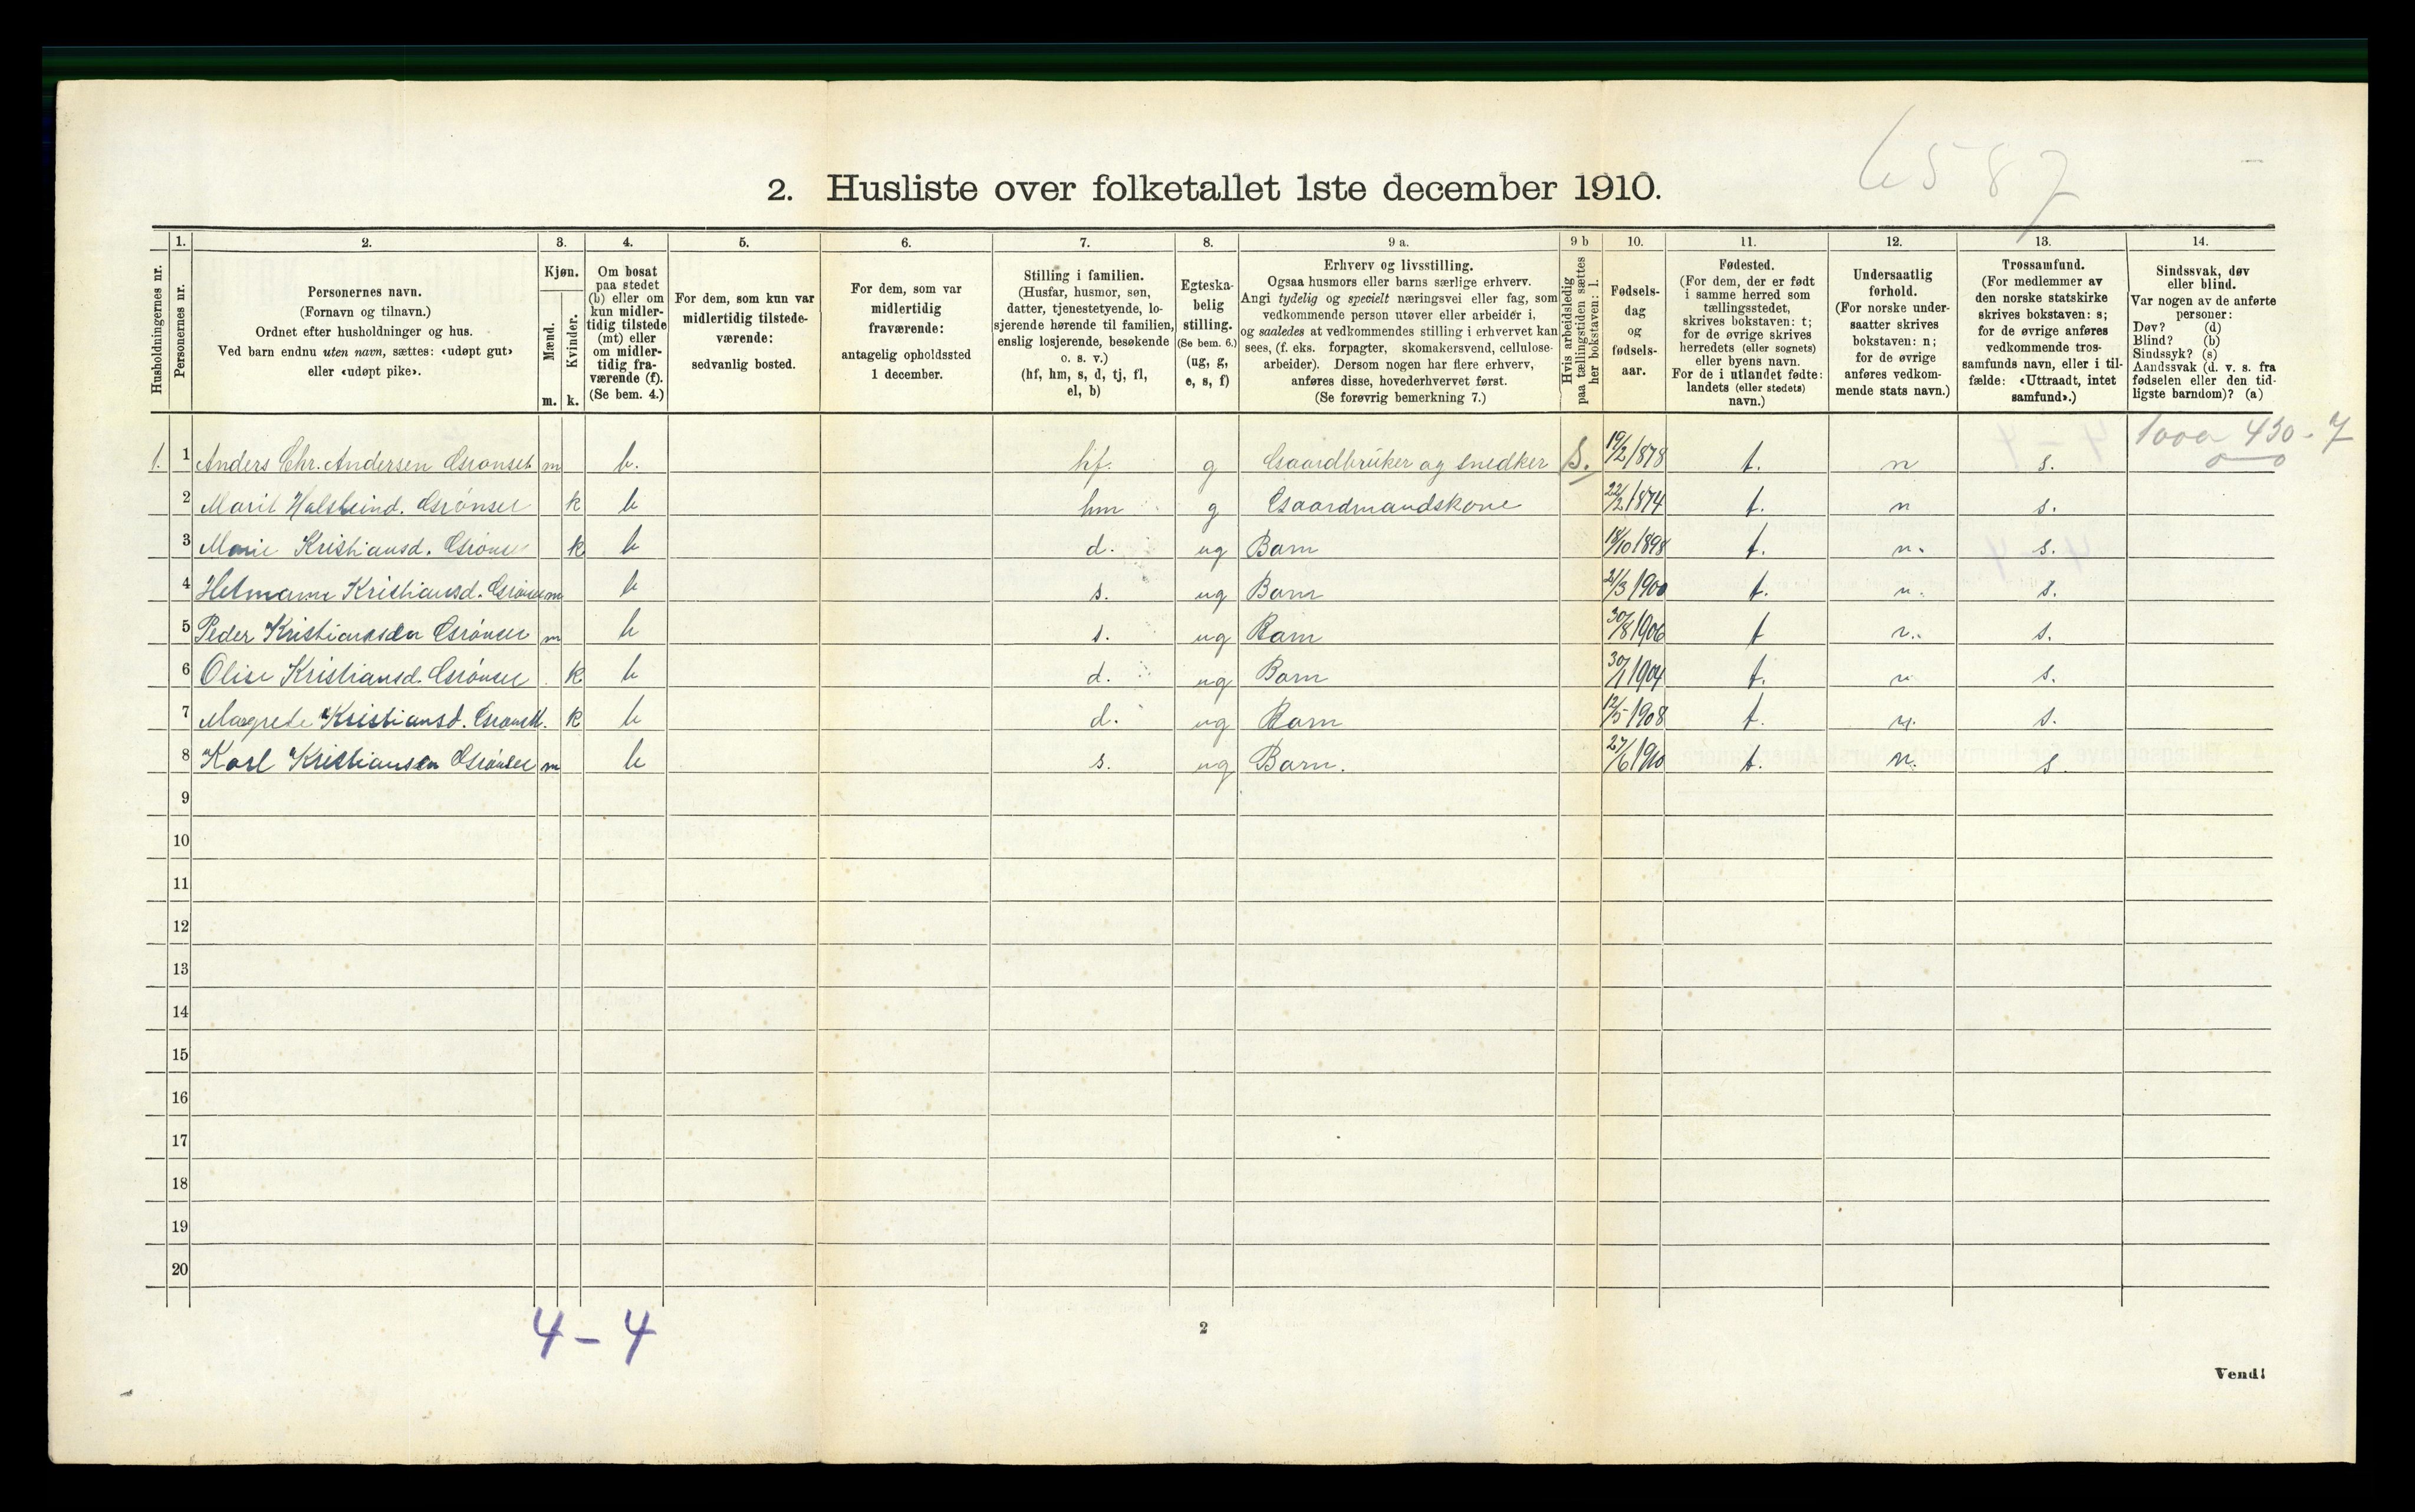 6587
2. Husliste over folketallet 1ste december 1910.
Husholdningernes nr.
1. Personernes nr.
2. Personernes navn.
(Fornavn og tilnavn.)
Ordnet efter husholdninger og hus.
Ved barn endnu uten navn, sættes: «udøpt gut»
eller «udøpt pike».
3. Kjøn.
Mænd. m.
Kvinder. k.
4. Om bosat
paa stedet
(b) eller om
kun midler-
tidig tilstede
(mt) eller
om midler-
tidig fra-
værende (f).
(Se bem. 4.)
5. For dem, som kun var
midlertidig tilstede-
værende:
sedvanlig bosted.
6. For dem, som var
midlertidig
fraværende:
antagelig opholdssted
1 december.
7. Stilling i familien.
(Husfar, husmor, søn,
datter, tjenestetyende, lo-
sjerende hørende til familien,
enslig losjerende, besøkende
o. s. v.)
(hf, hm, s, d, tj, fl,
el, b)
8. Egteska-
belig
stilling.
(Se bem. 6.)
(ug, g,
e, s, f)
9 a. Erhverv og livsstilling.
Ogsaa husmors eller barns særlige erhverv.
Angi tydelig og specielt næringsvei eller fag, som
vedkommende person utøver eller arbeider i,
og saaledes at vedkommendes stilling i erhvervet kan
sees, (f. eks. forpagter, skomakersvend, cellulose-
arbeider). Dersom nogen har flere erhverv,
anføres disse, hovederhvervet først.
(Se forøvrig bemerkning 7.)
9 b Hvis arbeidsledig
paa tællingstiden sættes
her bokstaven: l.
10. Fødsels-
dag
og
fødsels-
aar.
11. Fødested.
(For dem, der er født
i samme herred som
tællingsstedet,
skrives bokstaven: t;
for de øvrige skrives
herredets (eller sognets)
eller byens navn.
For de i utlandet fødte:
landets (eller stedets)
navn.)
12. Undersaatlig
forhold.
(For norske under-
saatter skrives
bokstaven: n;
for de øvrige
anføres vedkom-
mende stats navn.)
13. Trossamfund.
(For medlemmer av
den norske statskirke
skrives bokstaven: s;
for de øvrige anføres
vedkommende tros-
samfunds navn, eller i til-
fælde: «Uttraadt, intet
samfund».)
14. Sindssvak, døv
eller blind.
Var nogen av de anførte
personer:
Døv? (d)
Blind? (b)
Sindssyk? (s)
Aandssvak (d. v. s. fra
fødselen eller den tid-
ligste barndom)? (a)
1000 430-7
1. 1 Anders Chr. Andersen Grønset m b. hf. g Gaardbruker og snedker S. 19/2 1878 t. n s.
2 Marit Halsteind. Grønset k b hm g Gaardmandskone 22/2 1874 t. n s.
3 Marie Kristiansd. Grønset k b d. ug Barn 18/10 1898 t. n. s.
4 Kristiansd. Grønset m b s. ug Barn 21/3 1900 t. n. s.
5 Peder Kristiansen Grønset m b s. ug Barn 30/8 1906 t n. s.
6 Olise Kristiansd. Grønset k b d. ug Barn 30/1 1904 t. n s.
7 Magrete Kristiansd. Grønset. k b d. ug Barn 12/5 1908 t. n. s.
8 Karl Kristiansen Grønset m b s. ug Barn. 27/6 1910 t. n. s
9
10
11
12
13
14
15
16
17
18
19
20
4-4
2
Vend!